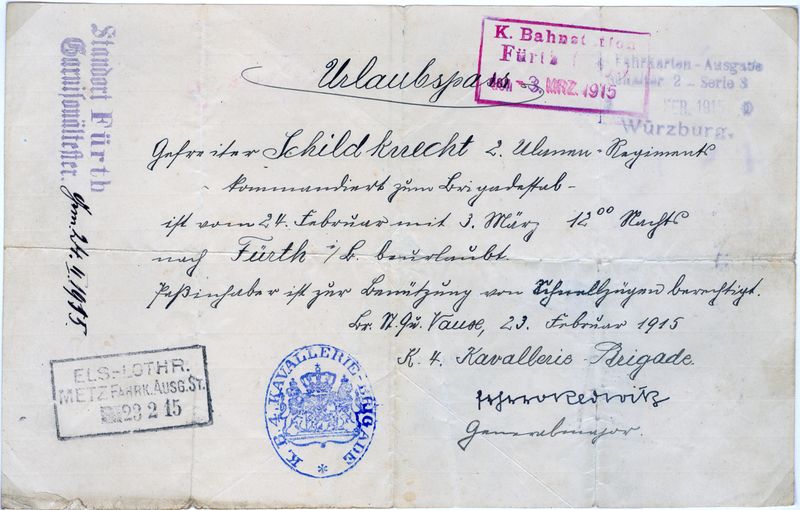 Urlaubspass
K. Bahnstation
Fürth
-3. MRZ. 1915
Fahrkarten-Ausgabe
Schalter 2 - Serie 3
FEB. 1915
Würzburg.
Standort Fürth
Garnisonältester.
Gem. 24. II 1915.
Gefreiter Schildknecht 2. Ulanen-Regiments
- kommandiert zum Brigadestab -
ist vom 24. Februar mit 3. März 12⁰⁰ Nachts
nach Fürth i/B. beurlaubt.
Paßinhaber ist zur Benützung von Schnellzügen berechtigt.
Br. St. Qu. Vaux, 23. Februar 1915
K. 4. Kavallerie-Brigade.
Generalmajor.
ELS.-LOTHR.
METZ FAHRK. AUSG. ST.
23 2 15
K. B. 4. KAVALLERIE-BRIGADE *